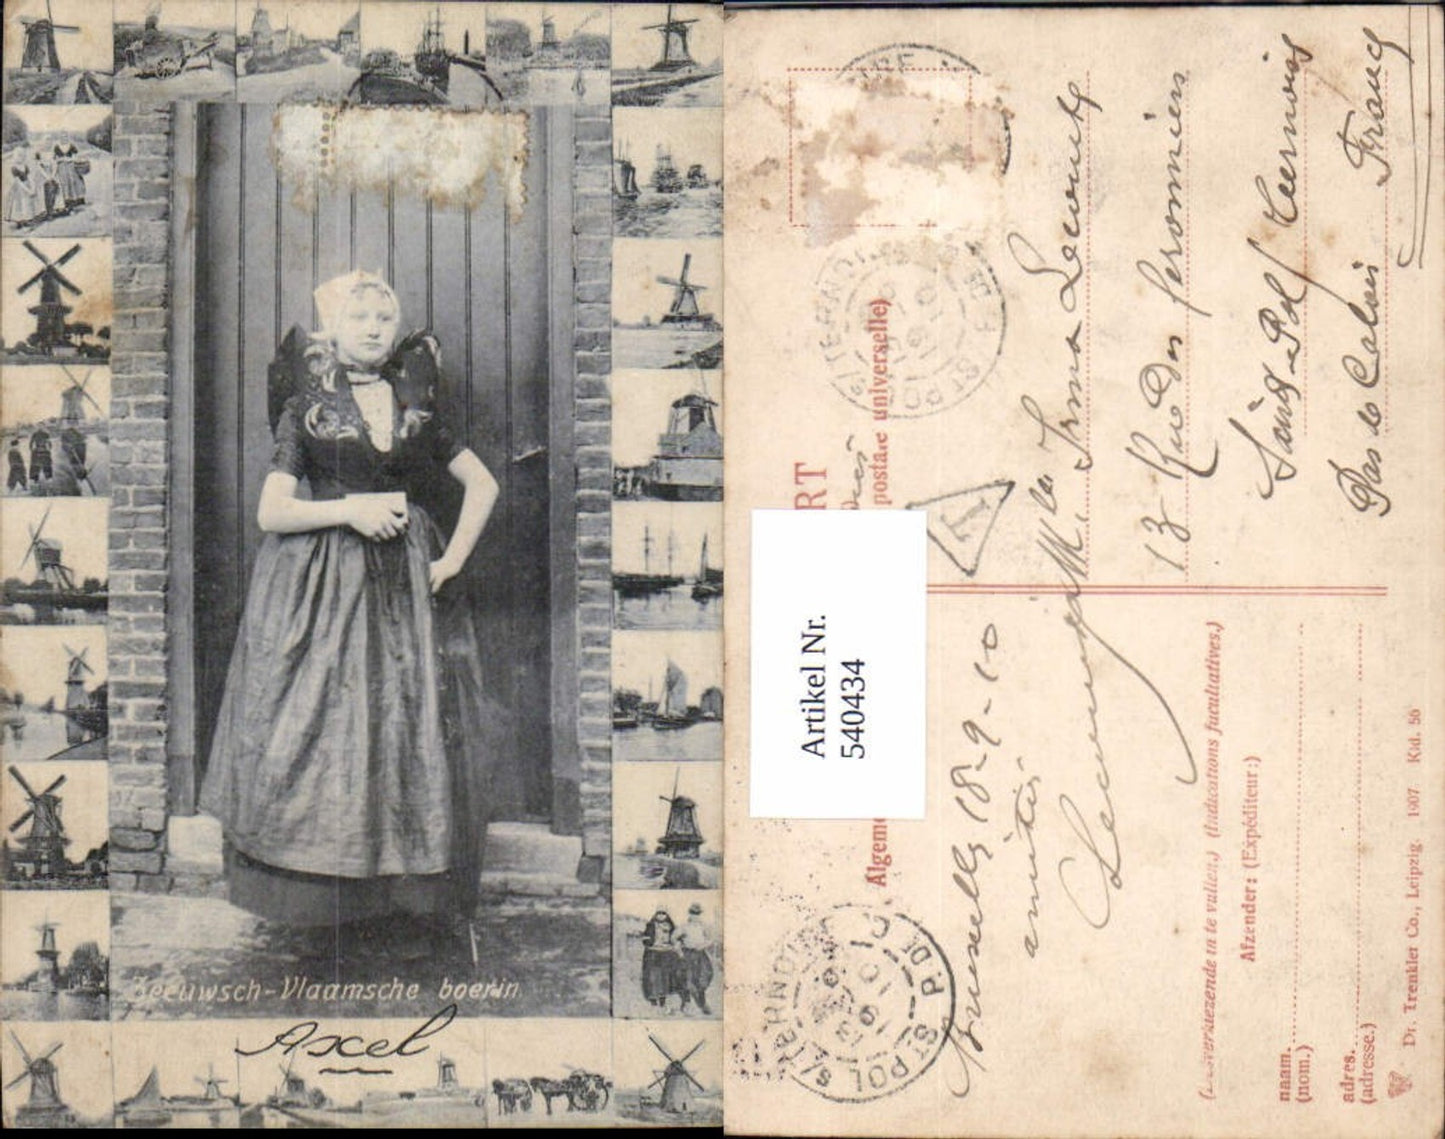 Zeeuwsch-Vlaamsche boerin.
Axel
RT
Algem
postale universelle)
Artikel Nr.
540434
T
Bruxelles 18-9-10
amitiés
Mlle Irma Lecomte
13 Rue des
Saint-Pol s/ Ternoise
Pas de Calais France
S/TERNOISE
ST POL
P. DE C.
19 10
te vullen.) (Indications facultatives.)
Afzender: (Expéditeur:)
naam.
(nom.)
adres.
(adresse.)
Dr. Trenkler Co., Leipzig. 1907 Kid. 50